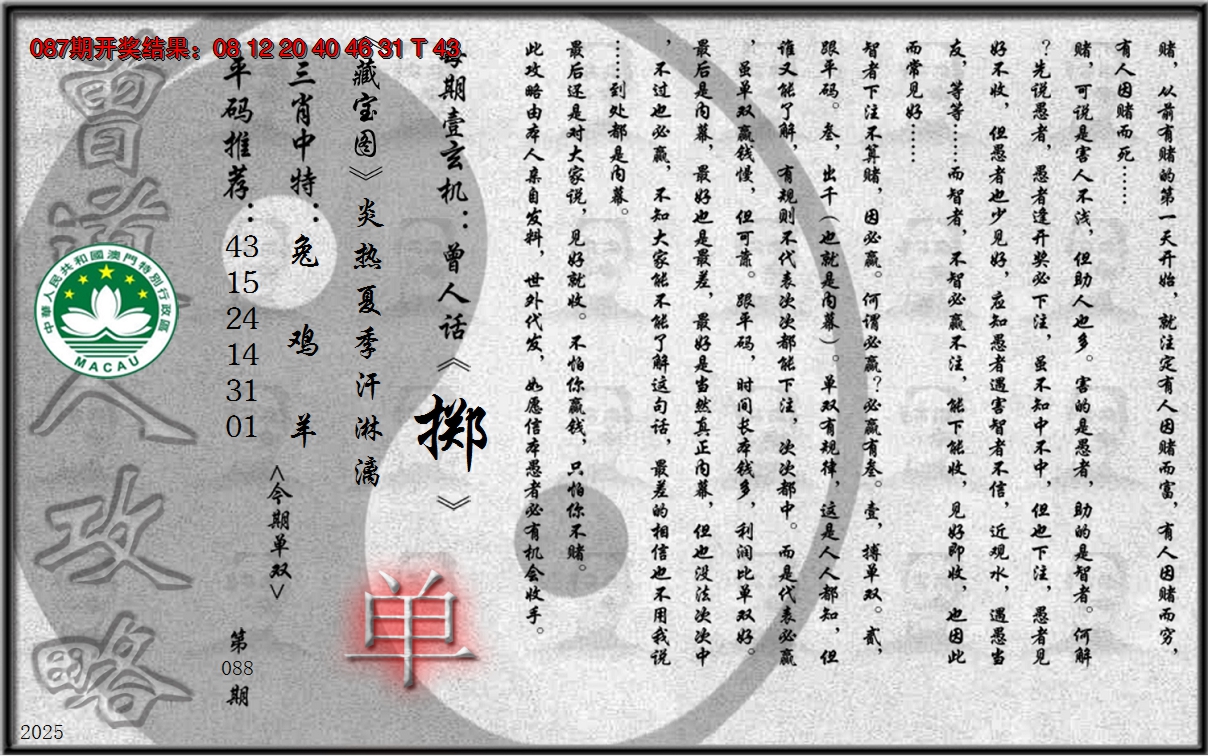 087期开奖结果：08 12 20 40 46 31 T 43
赌，从前有赌的第一天开始，就注定有人因赌而富，有人因赌而穷，
有人因赌而死……
赌，可说是害人不浅，但助人也多。害的是愚者，助的是智者。何解
？先说愚者，愚者逢开奖必下注，虽不知中不中，但也下注，愚者见
好不收，但愚者也少见好，应知愚者遇害智者不信，近观水，遇愚当
友，等等……而智者，不智必赢不注，能下能收，见好即收，也因此
而常见好……
智者下注不算赌，因必赢。何谓必赢？必赢有叁。壹，搏单双。贰，
跟平码。叁，出千（也就是内幕）。单双有规律，这是人人都知，但
谁又能了解，有规则不代表次次都能下注，次次都中。而是代表必赢
，虽单双赢钱慢，但可靠。跟平码，时间长本钱多，利润比单双好。
最后是内幕，最好也是最差，最好是当然真正内幕，但也没法次次中
，不过也必赢，不知大家能不能了解这句话，最差的相信也不用我说
……到处都是内幕。
最后还是对大家说，见好就收。不怕你赢钱，只怕你不赌。
此攻略由本人亲自发料，世外代发，如愿信本愚者必有机会收手。
每期壹玄机：曾人话《掷》
《藏宝图》炎热夏季汗淋漓
三肖中特：兔 鸡 羊
平码推荐：43 15 24 14 31 01
<今期单双>
单
第088期
曾道人攻略
中華人民共和國澳門特別行政區
MACAU
2025